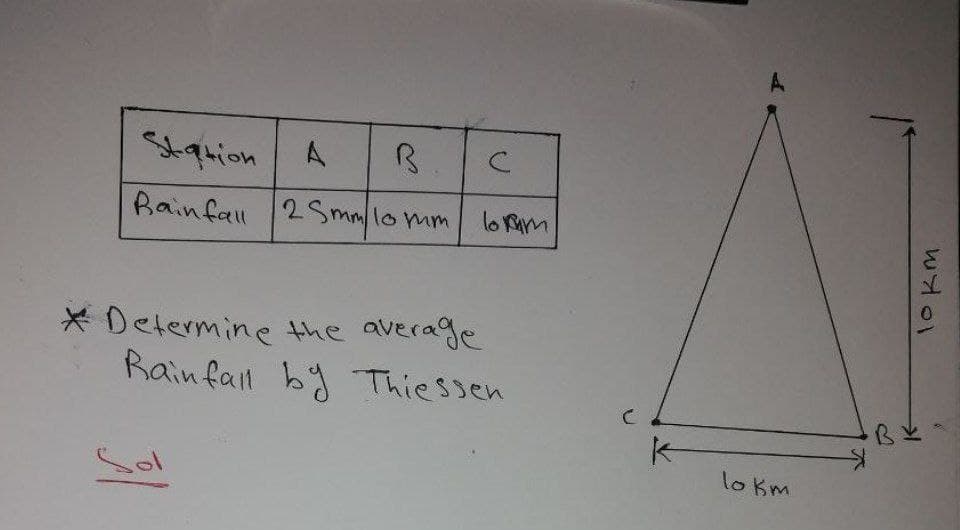 Station A B C
Rainfall 25mm 10 mm 10 mm
* Determine the average
Rainfall by Thiessen
Sol
A
C
B
10 Km
10 Km